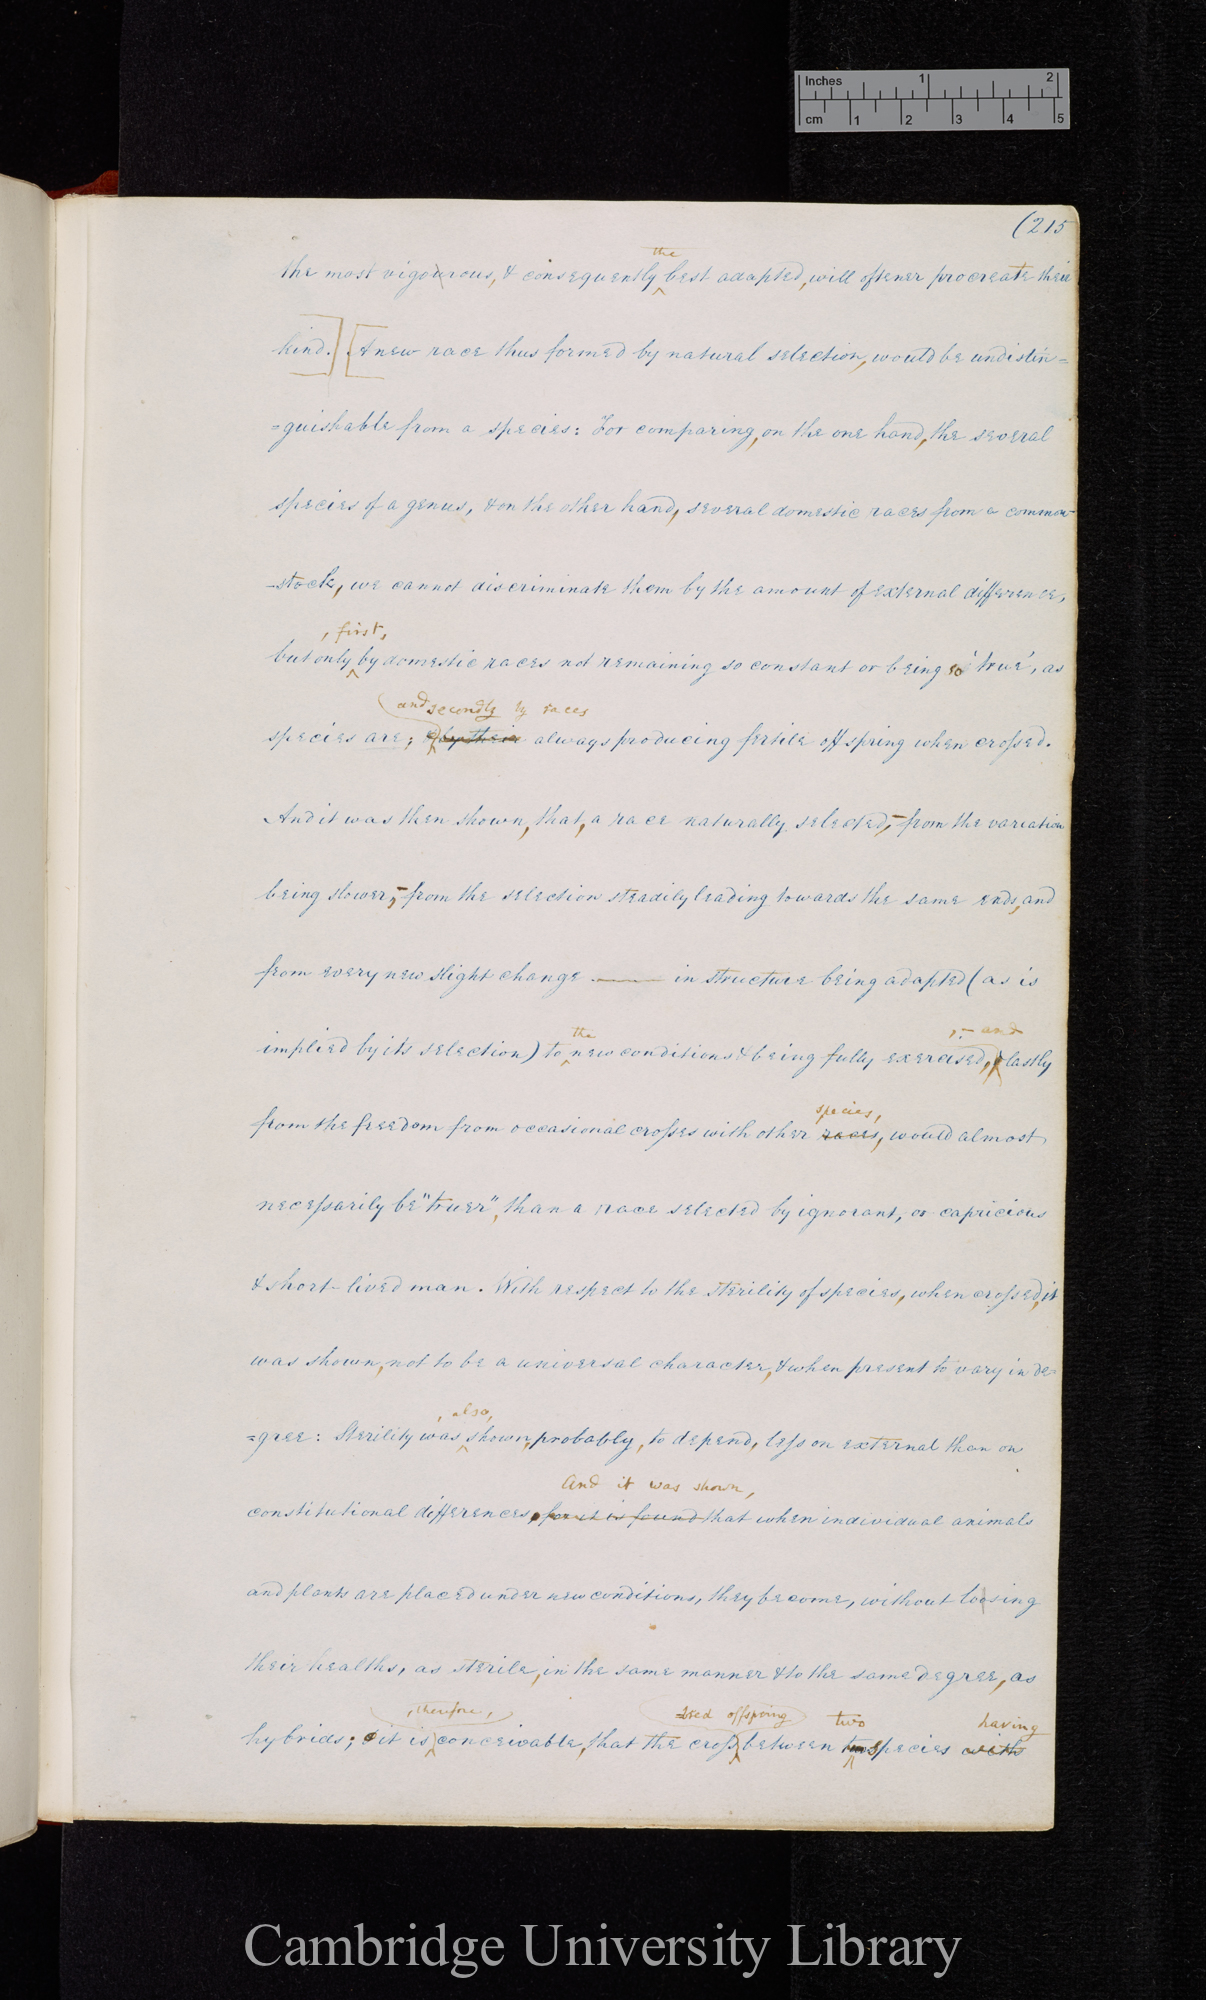 Inches 1 2
cm 1 2 3 4 5
(215
the
the most vigourous, & consequently best adapted, will oftener procreate their
kind.] [A new race thus formed by natural selection, would be undistin=
=guishable from a species: For comparing, on the one hand, the several
species of a genus, & on the other hand, several domestic races from a common
-stock, we cannot discriminate them by the amount of external difference,
, first,
but only by domestic races not remaining so constant or being so 'true', as
and secondly by races
species are; & by their always producing fertile offspring when crossed.
And it was then shown, that, a race naturally selected,—from the variation
being slower,—from the selection steadily leading towards the same ends, and
from every new slight change —— in structure being adapted (as is
the ,— and
implied by its selection) to new conditions & being fully exercised, & lastly
species,
from the freedom from occasional crosses with other races, would almost
necessarily be "truer", than a race selected by ignorant, or capricious
& short-lived man. With respect to the sterility of species, when crossed, it
was shown, not to be a universal character, & when present to vary in de-
, also,
=gree: Sterility was shown, probably, to depend, less on external than on
And it was shown,
constitutional differences, for it is found that when individual animals
and plants are placed under new conditions, they become, without loosing
their healths, as sterile, in the same manner & to the same degree, as
, therefore, =bred offspring two having
hybrids; it is conceivable, that the cross between two species with
Cambridge University Library